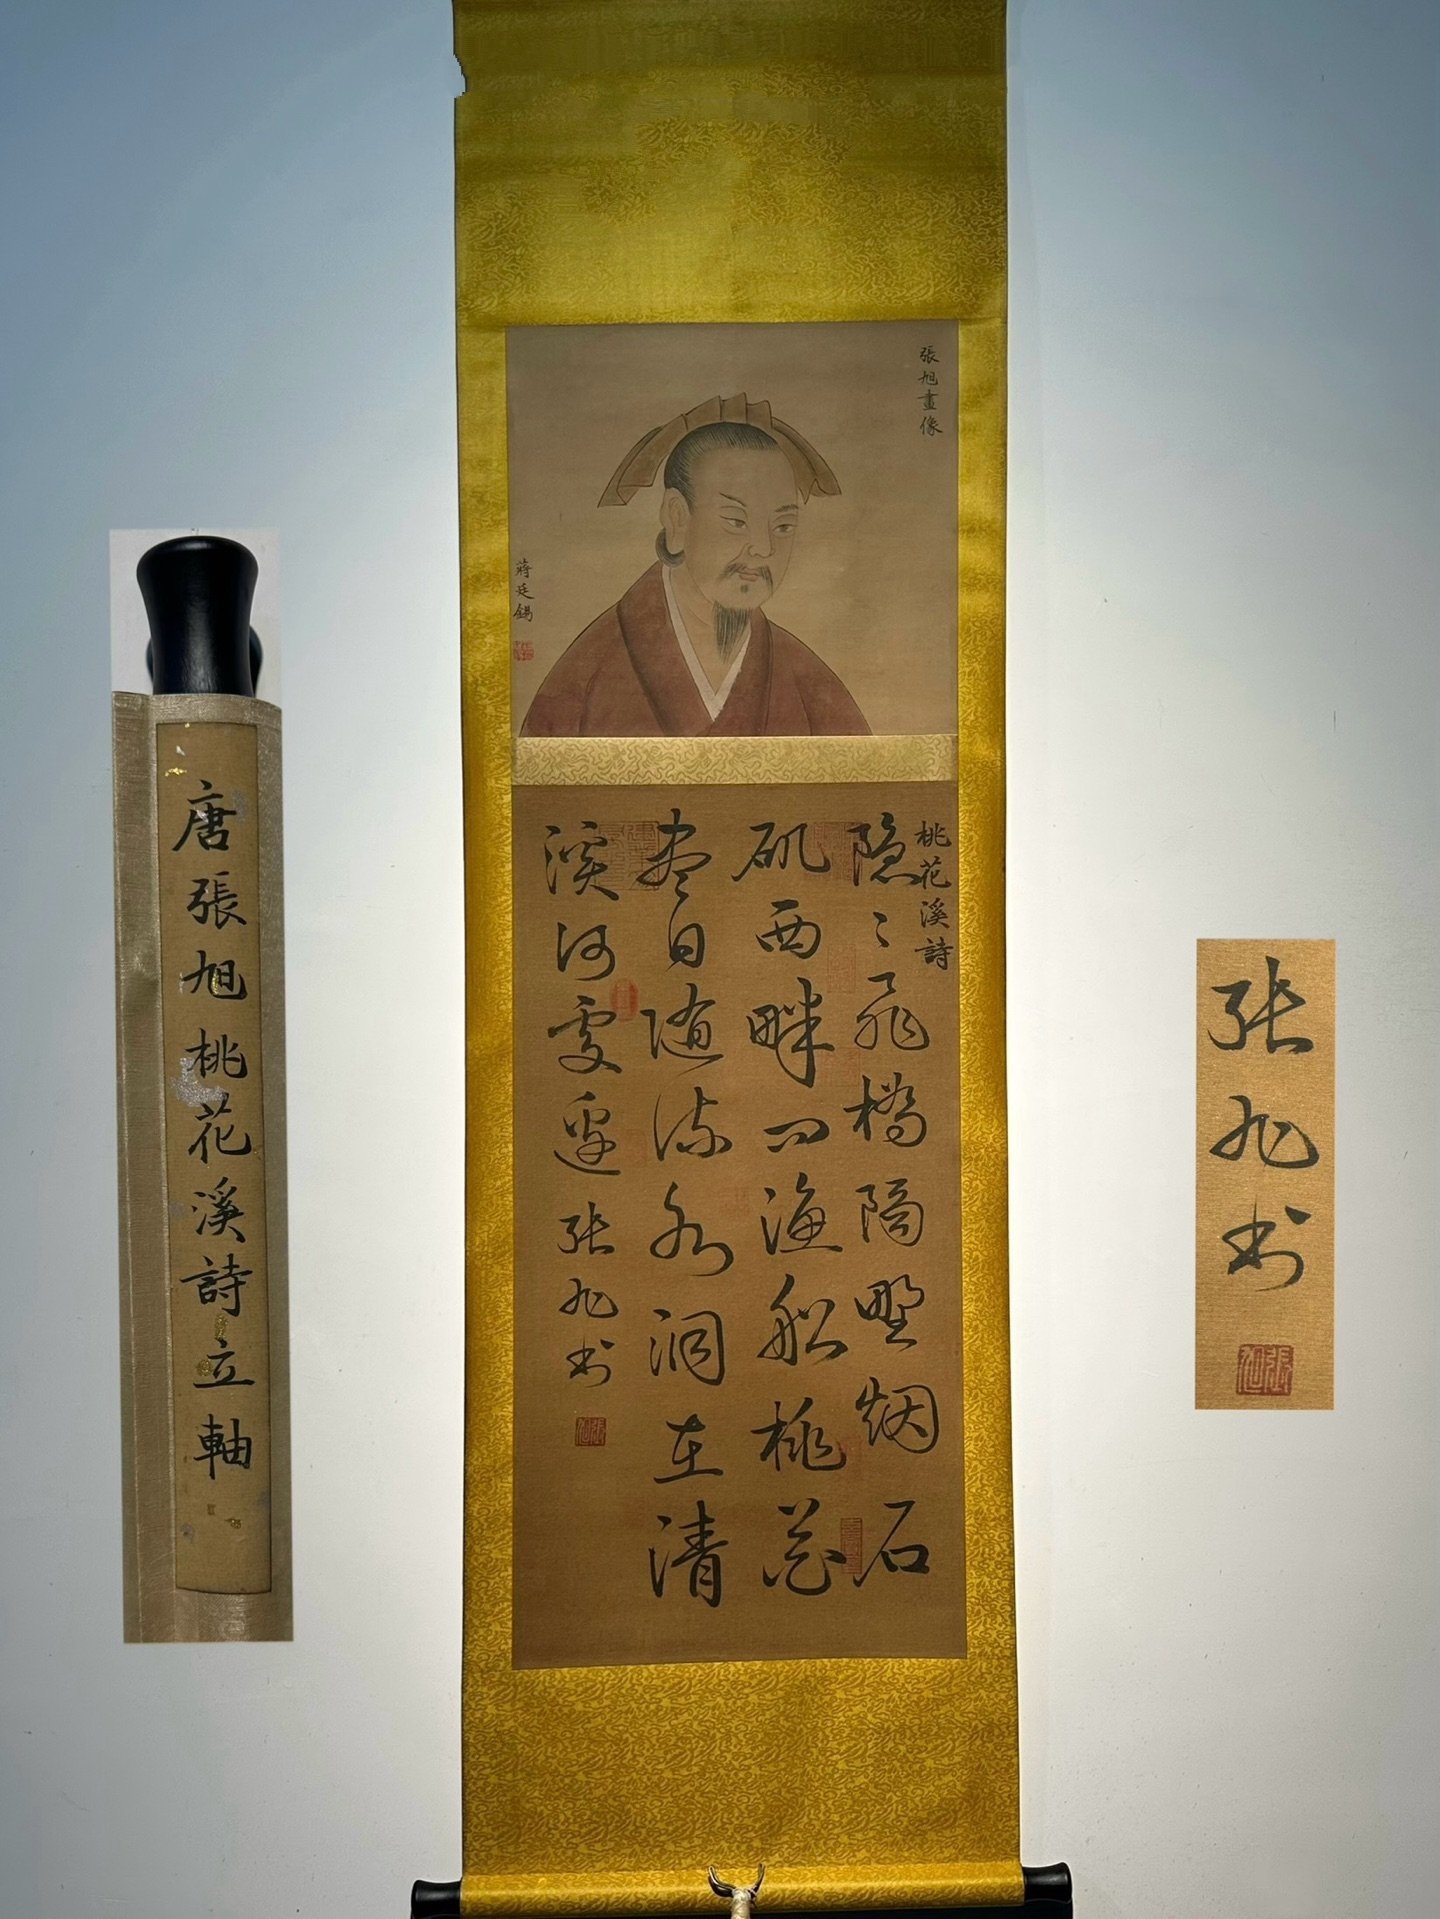 張旭畫像
蔣廷錫
桃花溪詩
隐〻飛橋隔野烟石
矶西畔问渔船桃花
尽日随流水洞在清
溪何處邊 张旭书
張旭
唐張旭桃花溪詩立軸
张旭书
張旭